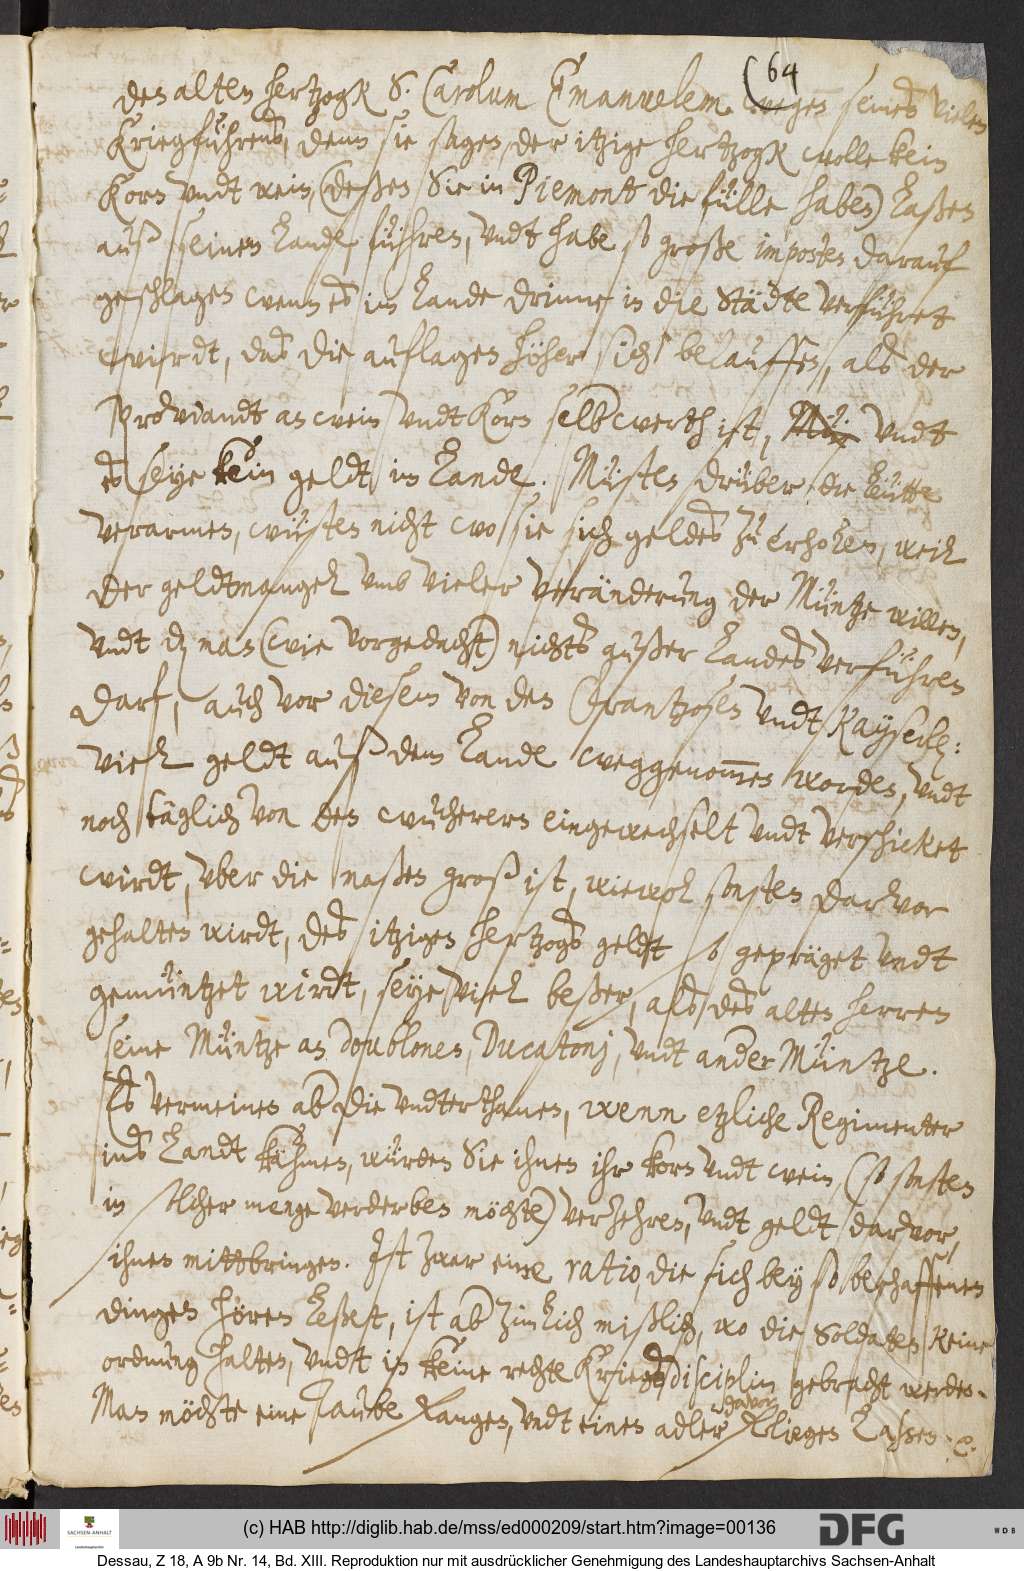 64
den alten hertzogk S. Carolum Emanuelem wegen seines vielen
Kriegführens, denn sie sagen, der itzige hertzogk wolle kein
Korn vndt wein, (deßen Sie in Piemont die fülle haben) laßen
auß seinem Lande führen, vndt habe so große imposten darauf
geschlagen wenn es im Lande drinne in die Städte verführet
wirdt, das die auflagen höher sich belauffen, als der
Proviandt an wein vndt Korn selb werth ist, vndt
es seye kein geldt im Lande. Müsten drüber die leütte
verarmen, wüsten nicht wo sie sich geldes zu erholen, weil
der geldtmangel vmb vieler veränderung der Müntze willen,
vndt dz man (wie vorgedacht) nichts außer Landes verführen
darf, auch vor diesem von den Frantzosen vndt Kayserl:
viel geldt auß dem Lande weggenommen worden, vndt
noch täglich von den wucherern eingewechselt vndt verschicket
wirdt, vber die maßen groß ist, wiewol sonsten darvor
gehalten wirdt, des itzigen hertzogs geldt so gepräget vndt
gemüntzet wirdt, seye viel beßer, als des alten herren
seine Müntze an doublonen, Ducatonj, vndt ander Müntze.
Es vermeinen ab die vndterthanen, wenn etzliche Regimenter
ins Landt kähmen, würden Sie ihnen ihr korn vndt wein, (so sonsten
in solcher menge verderben möchte) verzehren, vndt geldt darvor,
ihnen mittbringen. Ist zwar eine ratio, die sich bey so beschaffenen
dingen hören leßet, ist ab zimlich mißlich, wo die Soldaten keine
ordnung halten, vndt in keine rechte Kriegsdisciplin gebracht werden.
Man möchte eine Taube fangen, vndt einen adler darvon fliegen laßen. &c.
(c) HAB http://diglib.hab.de/mss/ed000209/start.htm?image=00136
SACHSEN-ANHALT
DFG
WDB
Dessau, Z 18, A 9b Nr. 14, Bd. XIII. Reproduktion nur mit ausdrücklicher Genehmigung des Landeshauptarchivs Sachsen-Anhalt